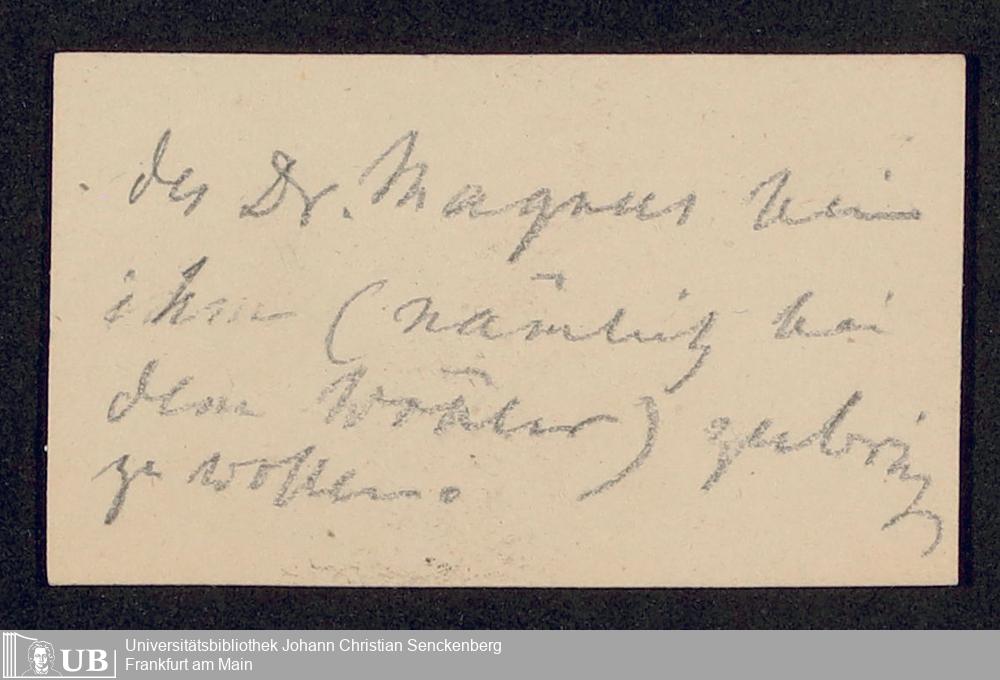 des Dr. Magnus bei
ihm (nämlich bei
dem Wöhler) zubring
zu wollen.
UB
Universitätsbibliothek Johann Christian Senckenberg
Frankfurt am Main